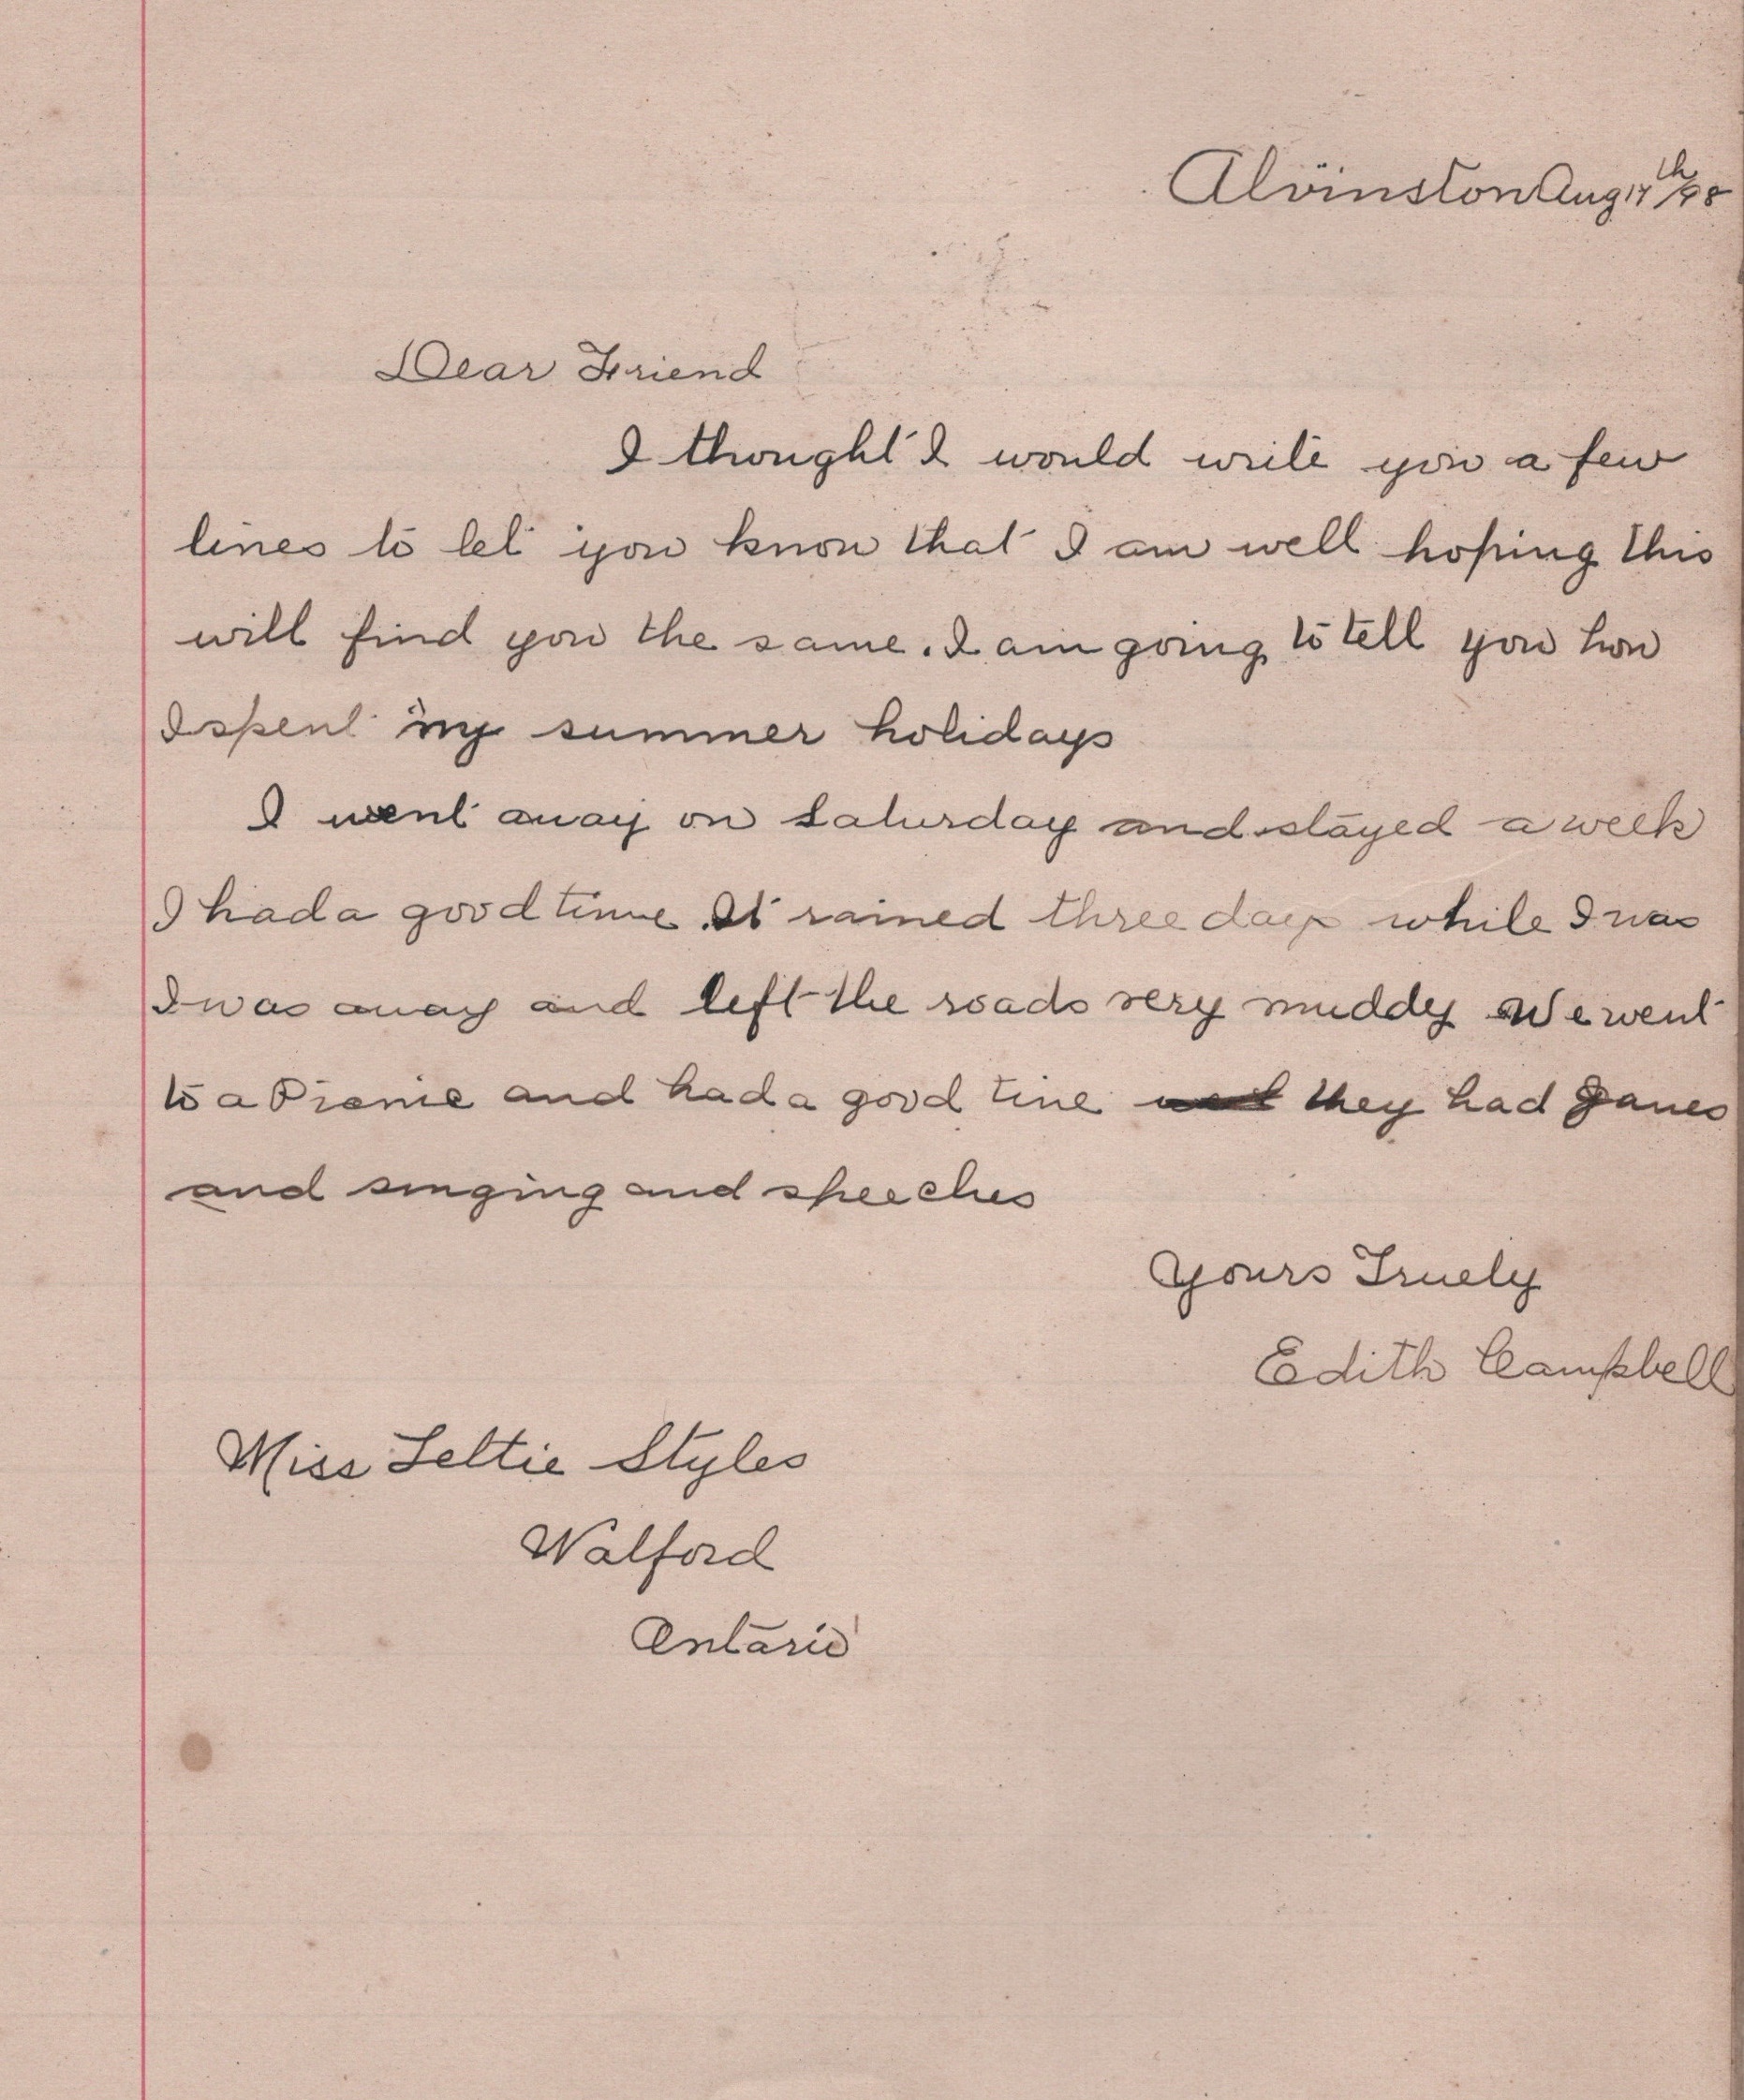 Alvinston Aug 17th /98
Dear Friend
I thought I would write you a few
lines to let you know that I am well hoping this
will find you the same. I am going to tell you how
I spent my summer holidays
I went away on Saturday and stayed a week
I had a good time. It rained three days while I was
I was away and left the roads very muddy We went
to a Picnic and had a good time they had games
and singing and speeches
Yours Truely
Edith Campbell
Miss Lettie Styles
Walford
Ontario